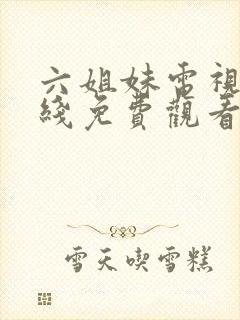 六姐妹電視
綫免費觀看
雪天喫雪糕